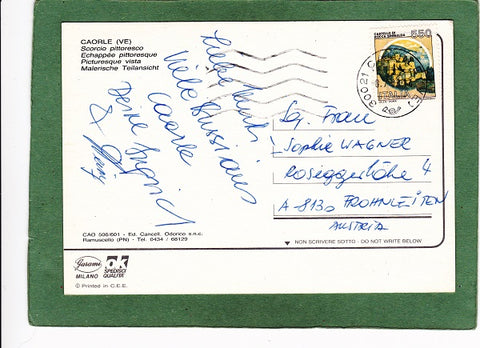 CAORLE (VE)
Scorcio pittoresco
Echappée pittoresque
Picturesque vista
Malerische Teilansicht
Liebe
Viele Bussi aus
Caorle
Deine Ingrid
&
CASTELLO DI
ROCCA SINIBALDA
550
ITALIA
30021 C
Sg. Frau
Sophie WAGNER
Roseggerhöhe 4
A-8130 FROHNLEITEN
AUSTRIA
CAO 506/601 - Ed. Cancell. Odorico s.n.c.
Ramuscello (PN) - Tel. 0434 / 68129
NON SCRIVERE SOTTO - DO NOT WRITE BELOW
MILANO
OK
SPEDISCI
QUALITÀ
© Printed in C.E.E.